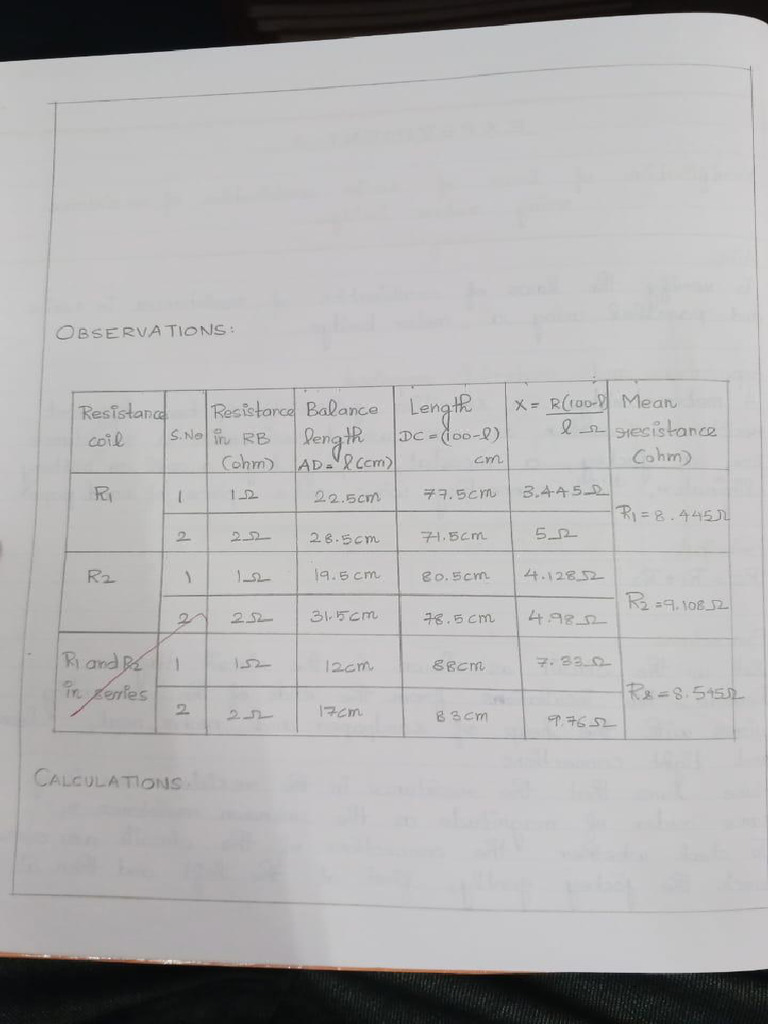 OBSERVATIONS:
Resistance coil | S.No | Resistance in RB (ohm) | Balance length AD = l (cm) | Length DC = (100-l) cm | X = R(100-l)/l Ω | Mean resistance (ohm)
R1 | 1 | 1Ω | 22.5cm | 77.5cm | 3.445Ω | R1 = 8.445Ω
2 | 2Ω | 28.5cm | 71.5cm | 5Ω
R2 | 1 | 1Ω | 19.5cm | 80.5cm | 4.128Ω | R2 = 9.108Ω
2 | 2Ω | 31.5cm | 78.5cm | 4.98Ω
R1 and R2 in serries | 1 | 1Ω | 12cm | 88cm | 7.33Ω | Rs = 8.545Ω
2 | 2Ω | 17cm | 83cm | 9.76Ω
CALCULATIONS